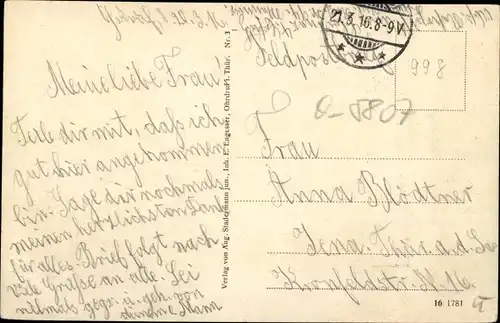 21.3.16.8-9V
Feldpost
998
Meine liebe Frau!
Teile dir mit, daß ich
gut hier angekommen
bin. Sage dir nochmals
meinen herzlichsten Dank
für alles. Brief folgt nach
Viele Grüße an alle. Sei
vielmals gegr. u. gek. von
deinem Mann
Verlag von Aug. Stadermann jun., Inh. E. Engesser, Ohrdruf i. Thür. Nr. 3
Frau
Anna Blödtner
Jena Thür. a.d. Saale
16 1781